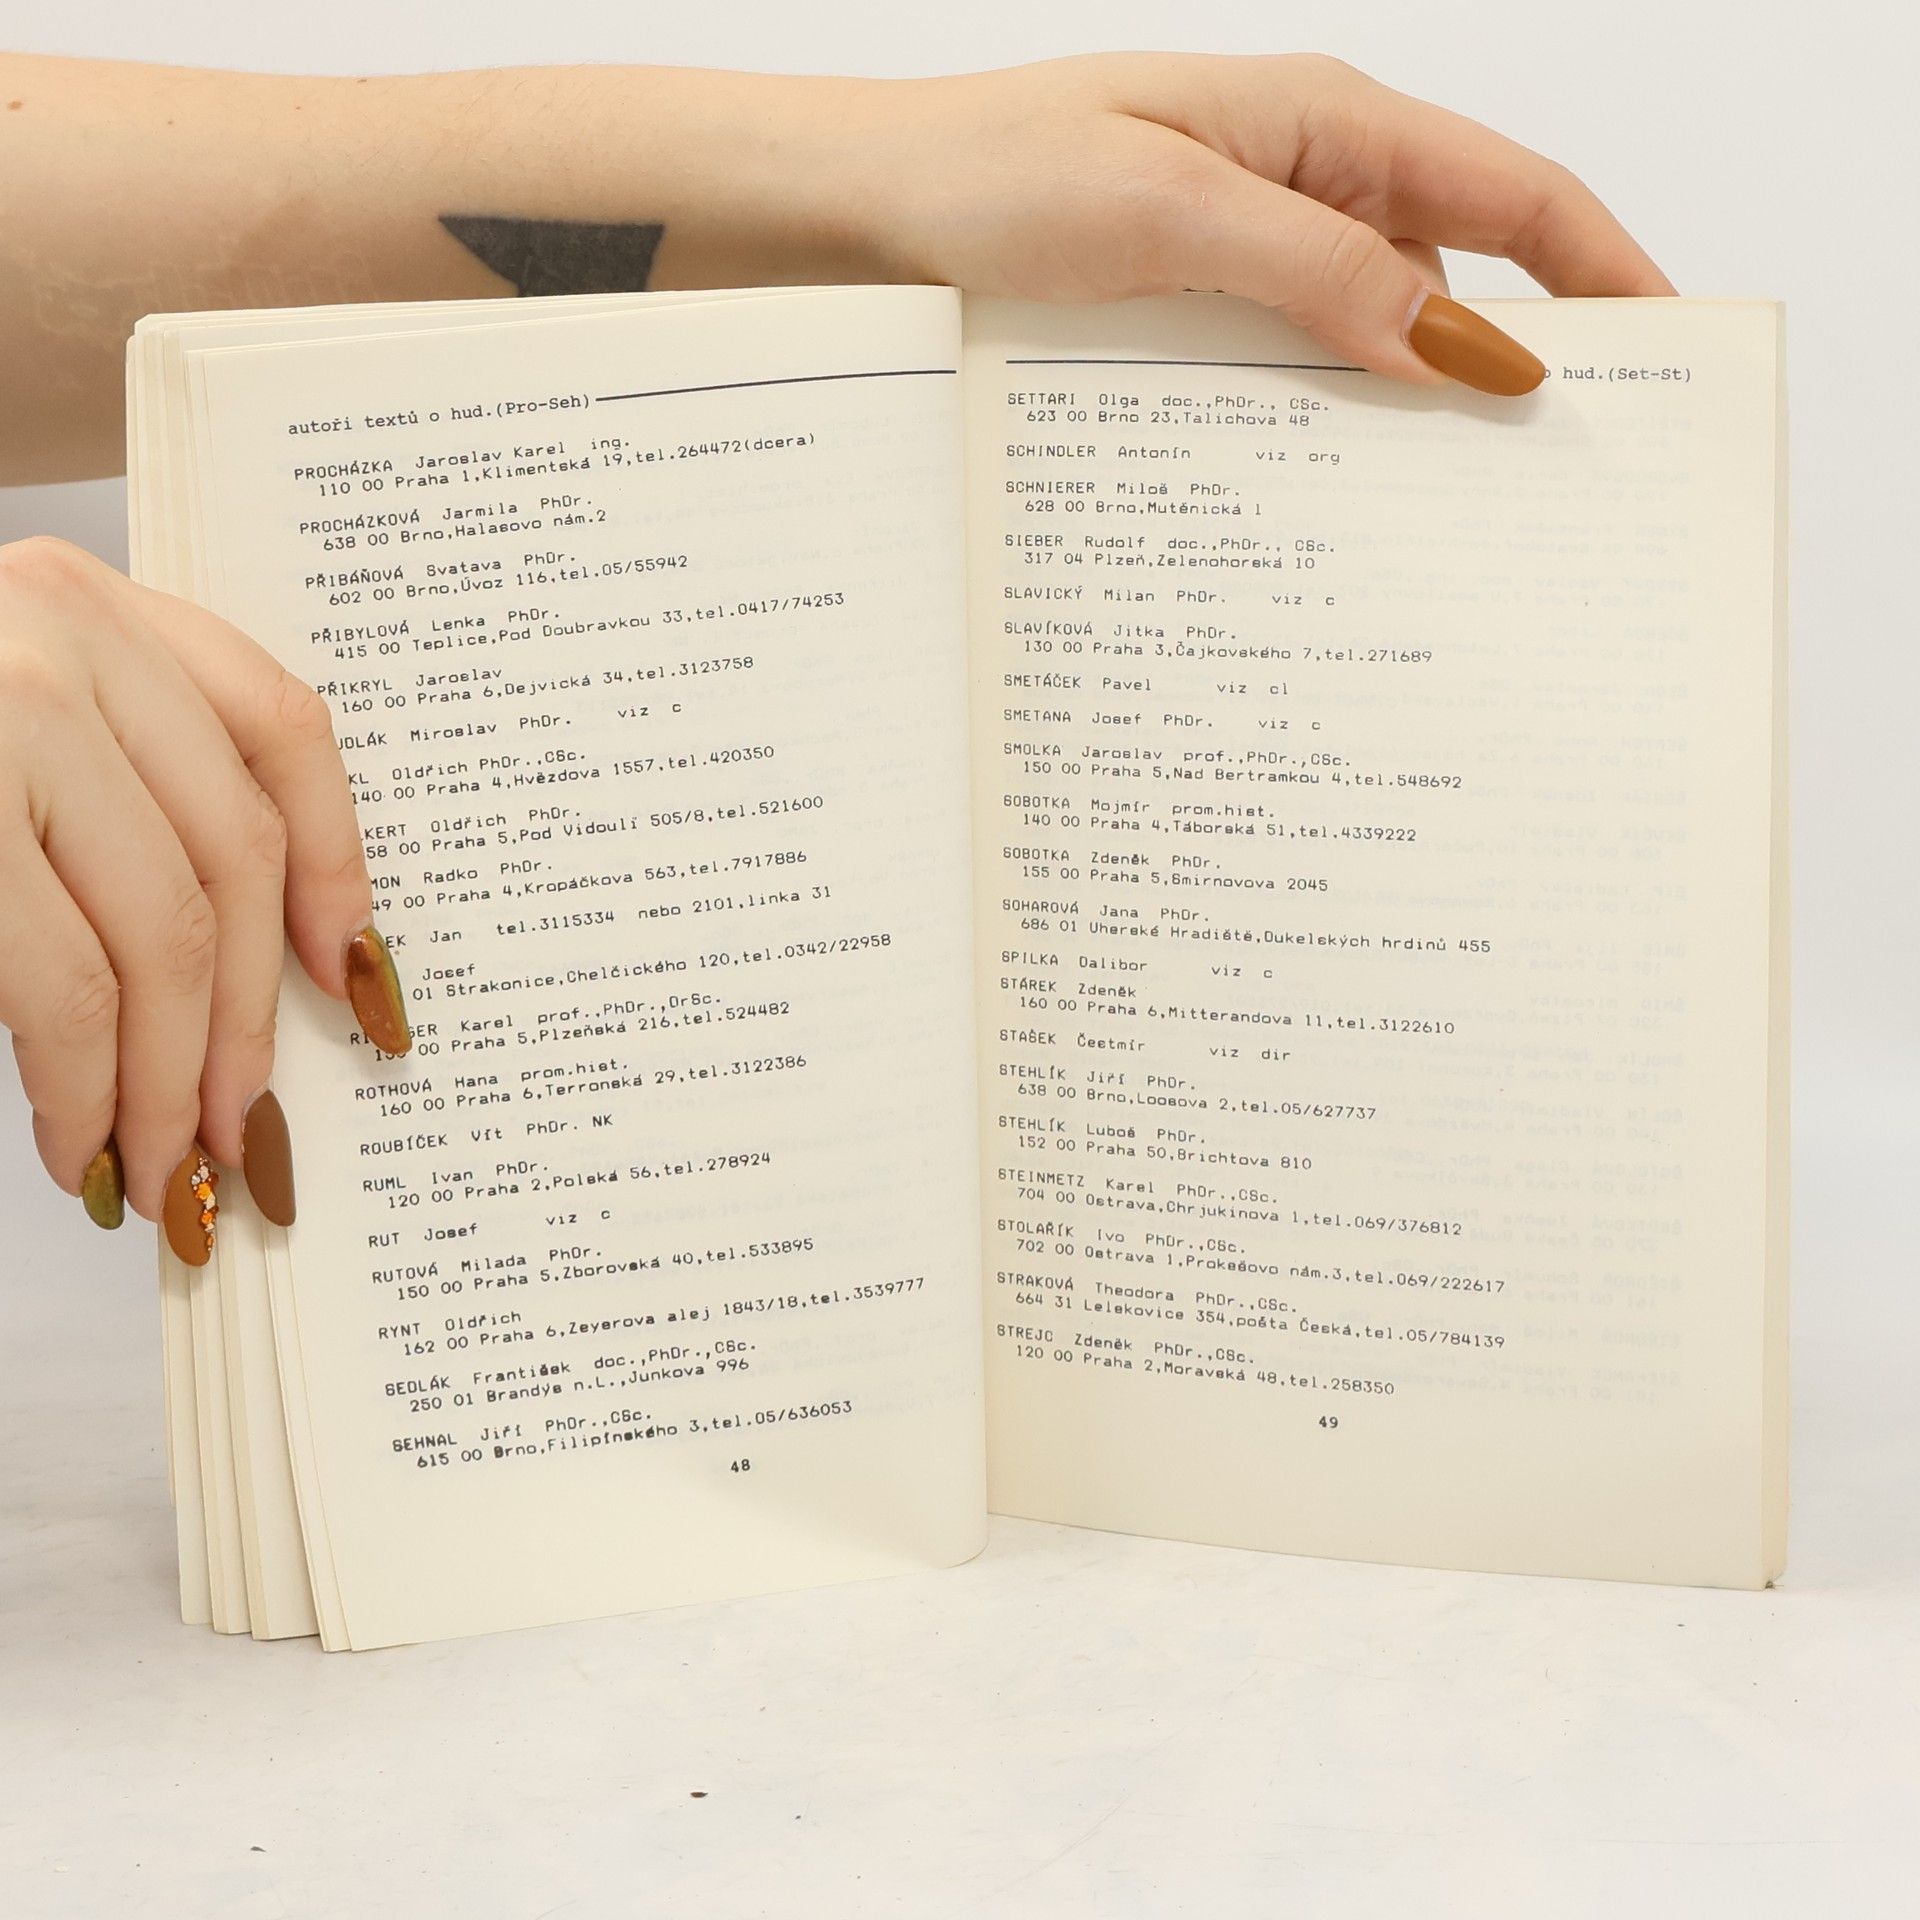 autoři textů o hud.(Pro-Seh)
PROCHÁZKA Jaroslav Karel ing.
110 00 Praha 1,Klimentská 19,tel.264472(dcera)
PROCHÁZKOVÁ Jarmila PhDr.
638 00 Brno,Halasovo nám.2
PŘIBÁŇOVÁ Svatava PhDr.
602 00 Brno,Úvoz 116,tel.05/55942
PŘIBYLOVÁ Lenka PhDr.
415 00 Teplice,Pod Doubravkou 33,tel.0417/74253
PŘIKRYL Jaroslav
160 00 Praha 6,Dejvická 34,tel.3123758
UDLÁK Miroslav PhDr. viz c
KL Oldřich PhDr.,CSc.
140 00 Praha 4,Hvězdova 1557,tel.420350
KERT Oldřich PhDr.
58 00 Praha 5,Pod Vidoulí 505/8,tel.521600
MON Radko PhDr.
49 00 Praha 4,Kropáčkova 563,tel.7917886
EK Jan tel.3115334 nebo 2101,linka 31
Josef
01 Strakonice,Chelčického 120,tel.0342/22958
GER Karel prof.,PhDr.,DrSc.
00 Praha 5,Plzeňská 216,tel.524482
ROTHOVÁ Hana prom.hist.
160 00 Praha 6,Terronská 29,tel.3122386
ROUBÍČEK Vít PhDr. NK
RUML Ivan PhDr.
120 00 Praha 2,Polská 56,tel.278924
RUT Josef viz c
RUTOVÁ Milada PhDr.
150 00 Praha 5,Zborovská 40,tel.533895
RYNT Oldřich
162 00 Praha 6,Zeyerova alej 1843/18,tel.3539777
SEDLÁK František doc.,PhDr.,CSc.
250 01 Brandýs n.L.,Junkova 996
SEHNAL Jiří PhDr.,CSc.
615 00 Brno,Filipínského 3,tel.05/636053
48
o hud.(Set-St)
SETTARI Olga doc.,PhDr., CSc.
623 00 Brno 23,Talichova 48
SCHINDLER Antonín viz org
SCHNIERER Miloš PhDr.
628 00 Brno,Mutěnická 1
SIEBER Rudolf doc.,PhDr., CSc.
317 04 Plzeň,Zelenohorská 10
SLAVICKÝ Milan PhDr. viz c
SLAVÍKOVÁ Jitka PhDr.
130 00 Praha 3,Čajkovského 7,tel.271689
SMETÁČEK Pavel viz cl
SMETANA Josef PhDr. viz c
SMOLKA Jaroslav prof.,PhDr.,CSc.
150 00 Praha 5,Nad Bertramkou 4,tel.548692
SOBOTKA Mojmír prom.hist.
140 00 Praha 4,Táborská 51,tel.4339222
SOBOTKA Zdeněk PhDr.
155 00 Praha 5,Smirnovova 2045
SOHAROVÁ Jana PhDr.
686 01 Uherské Hradiště,Dukelských hrdinů 455
SPILKA Dalibor viz c
STÁREK Zdeněk
160 00 Praha 6,Mitterandova 11,tel.3122610
STAŠEK Čestmír viz dir
STEHLÍK Jiří PhDr.
638 00 Brno,Loosova 2,tel.05/627737
STEHLÍK Luboš PhDr.
152 00 Praha 50,Brichtova 810
STEINMETZ Karel PhDr.,CSc.
704 00 Ostrava,Chrjukinova 1,tel.069/376812
STOLAŘÍK Ivo PhDr.,CSc.
702 00 Ostrava 1,Prokešovo nám.3,tel.069/222617
STRAKOVÁ Theodora PhDr.,CSc.
664 31 Lelekovice 354,pošta Česká,tel.05/784139
STREJC Zdeněk PhDr.,CSc.
120 00 Praha 2,Moravská 48,tel.258350
49